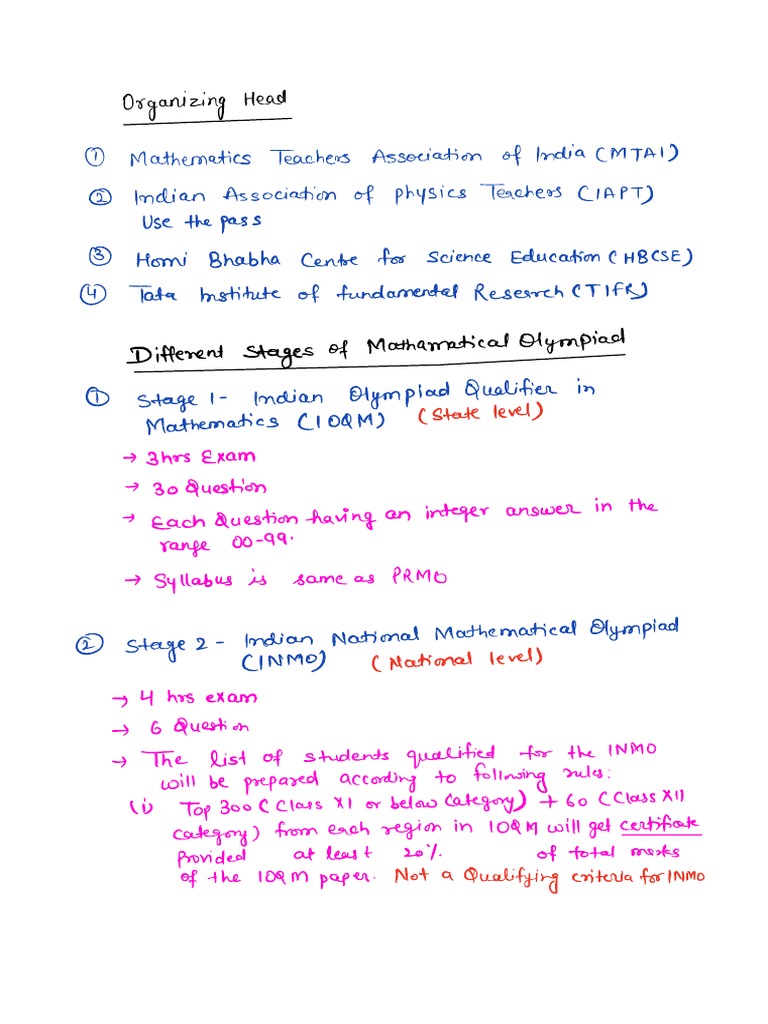 Organizing Head
① Mathematics Teachers Association of India (MTAI)
② Indian Association of physics Teachers (IAPT)
Use the pass
③ Homi Bhabha Centre for Science Education (HBCSE)
④ Tata Institute of fundamental Research (TIFR)
Different Stages of Mathamatical Olympiad
① Stage 1- Indian Olympiad Qualifier in
Mathematics (IOQM) (State level)
→ 3hrs Exam
→ 30 Question
→ Each Question having an integer answer in the
range 00-99.
→ Syllabus is same as PRMO
② Stage 2 - Indian National Mathematical Olympiad
(INMO) (National level)
→ 4 hrs exam
→ 6 Question
→ The list of students qualified for the INMO
will be prepared according to following rules:
(i) Top 300 (Class XI or below Category) + 60 (Class XII
category) from each region in IOQM will get certificate
Provided at least 20% of total marks
of the IOQM paper. Not a Qualifying criteria for INMO